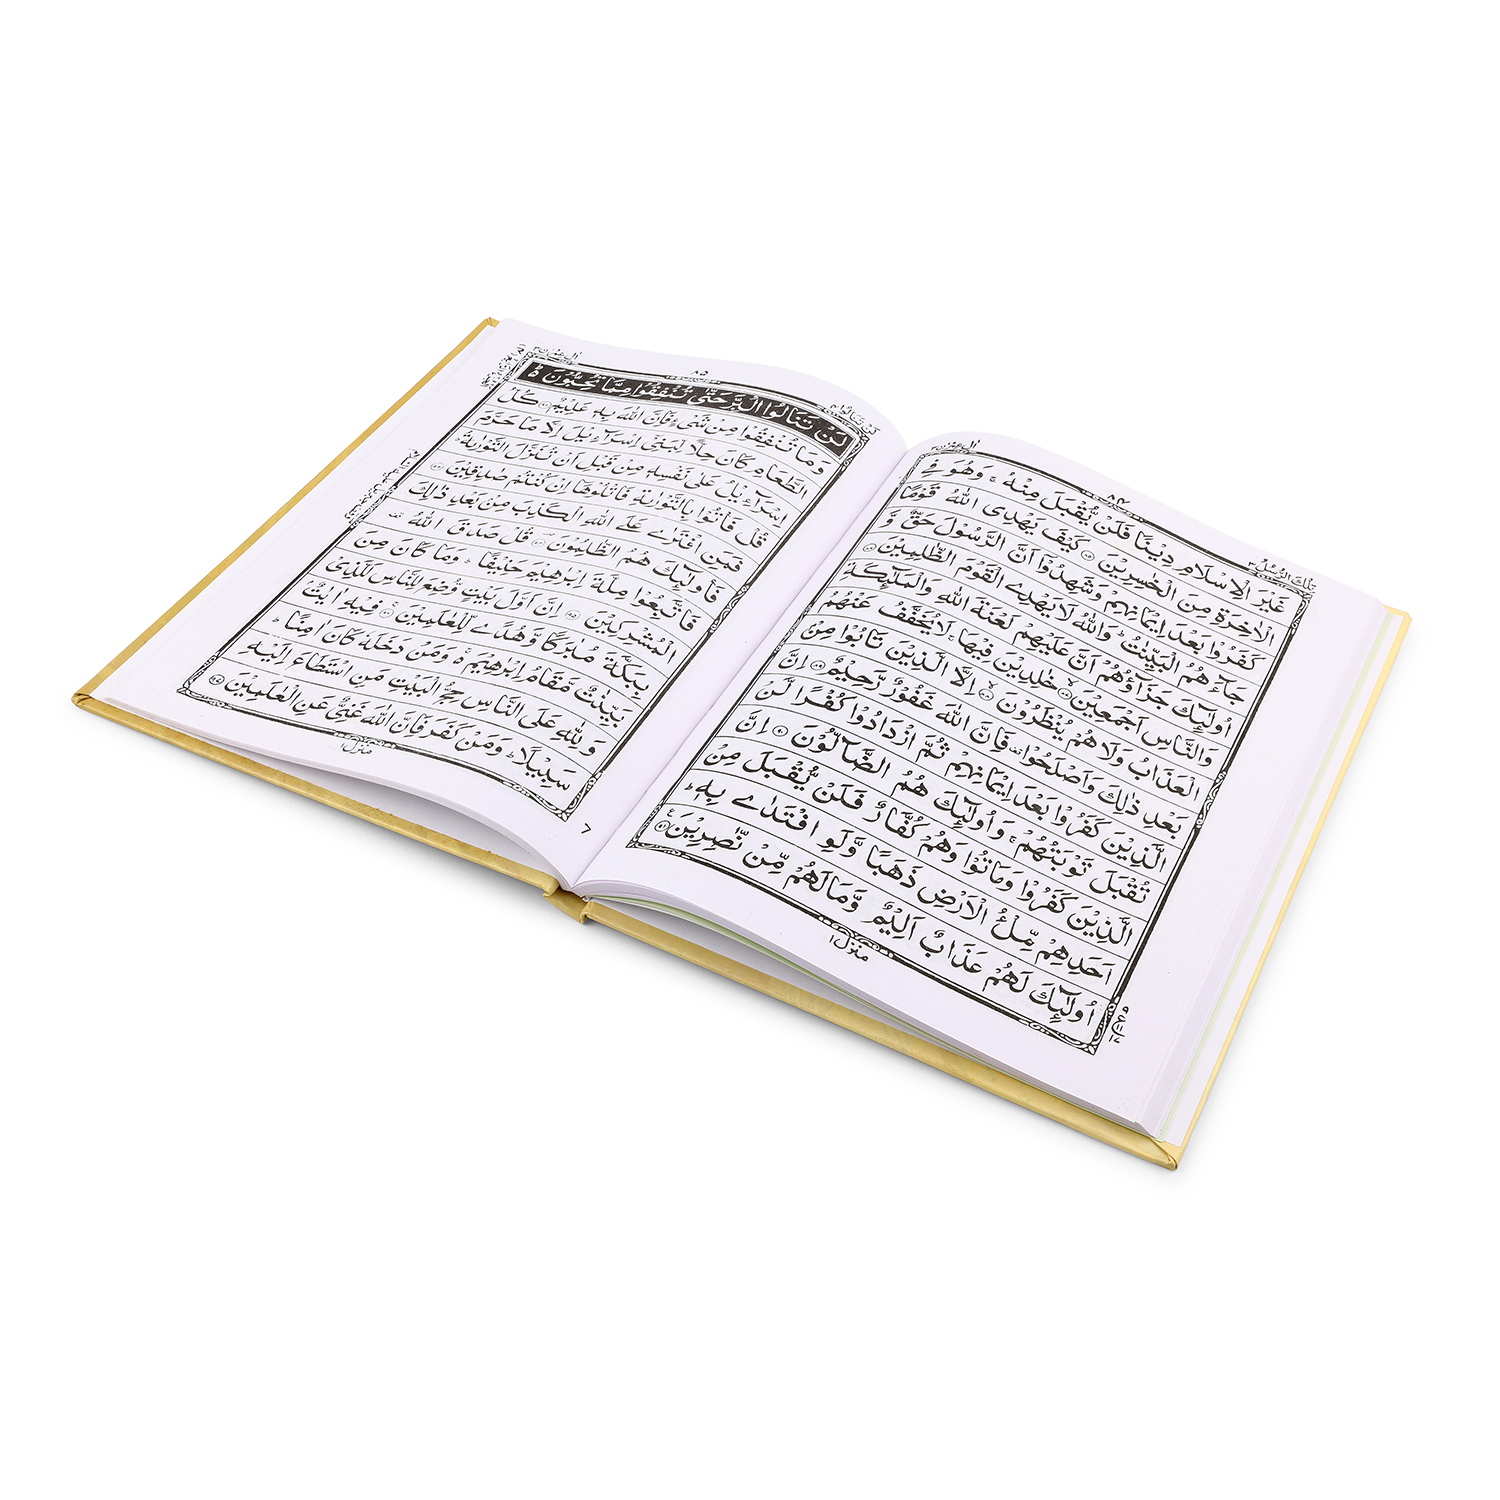 تِلْكَ الرُّسُلُ ٣
٨٤
اٰلِ عِمْرٰن ٣
غَيْرَ الْاِسْلَامِ دِيْنًا فَلَنْ يُّقْبَلَ مِنْهُ ۚ وَهُوَ فِى
الْاٰخِرَةِ مِنَ الْخٰسِرِيْنَ ﴿۸۵﴾ كَيْفَ يَهْدِى اللّٰهُ قَوْمًا
كَفَرُوْا بَعْدَ اِيْمَانِهِمْ وَشَهِدُوْٓا اَنَّ الرَّسُوْلَ حَقٌّ وَّ
جَآءَهُمُ الْبَيِّنٰتُ ؕ وَاللّٰهُ لَا يَهْدِى الْقَوْمَ الظّٰلِمِيْنَ ﴿۸۶﴾
اُولٰٓئِكَ جَزَآؤُهُمْ اَنَّ عَلَيْهِمْ لَعْنَةَ اللّٰهِ وَالْمَلٰٓئِكَةِ
وَالنَّاسِ اَجْمَعِيْنَ ﴿۸۷﴾ خٰلِدِيْنَ فِيْهَا ۚ لَا يُخَفَّفُ عَنْهُمُ
الْعَذَابُ وَلَا هُمْ يُنْظَرُوْنَ ﴿۸۸﴾ اِلَّا الَّذِيْنَ تَابُوْا مِنْۢ
بَعْدِ ذٰلِكَ وَاَصْلَحُوْا ۟ فَاِنَّ اللّٰهَ غَفُوْرٌ رَّحِيْمٌ ﴿۸۹﴾ اِنَّ
الَّذِيْنَ كَفَرُوْا بَعْدَ اِيْمَانِهِمْ ثُمَّ ازْدَادُوْا كُفْرًا لَّنْ
تُقْبَلَ تَوْبَتُهُمْ ۚ وَاُولٰٓئِكَ هُمُ الضَّآلُّوْنَ ﴿۹۰﴾ اِنَّ
الَّذِيْنَ كَفَرُوْا وَمَاتُوْا وَهُمْ كُفَّارٌ فَلَنْ يُّقْبَلَ مِنْ
اَحَدِهِمْ مِّلْءُ الْاَرْضِ ذَهَبًا وَّلَوِ افْتَدٰى بِهٖ ؕ
اُولٰٓئِكَ لَهُمْ عَذَابٌ اَلِيْمٌ وَّمَا لَهُمْ مِّنْ نّٰصِرِيْنَ ﴿۹۱﴾
منزل ١
لَنْ تَنَالُوا ٤
٨٥
اٰلِ عِمْرٰن ٣
لَنْ تَنَالُوا الْبِرَّ حَتّٰى تُنْفِقُوْا مِمَّا تُحِبُّوْنَ ؕ
وَمَا تُنْفِقُوْا مِنْ شَىْءٍ فَاِنَّ اللّٰهَ بِهٖ عَلِيْمٌ ﴿۹۲﴾ كُلُّ
الطَّعَامِ كَانَ حِلًّا لِّبَنِىْٓ اِسْرَآءِيْلَ اِلَّا مَا حَرَّمَ
اِسْرَآءِيْلُ عَلٰى نَفْسِهٖ مِنْ قَبْلِ اَنْ تُنَزَّلَ التَّوْرٰىةُ ؕ
قُلْ فَاْتُوْا بِالتَّوْرٰىةِ فَاتْلُوْهَآ اِنْ كُنْتُمْ صٰدِقِيْنَ ﴿۹۳﴾
فَمَنِ افْتَرٰى عَلَى اللّٰهِ الْكَذِبَ مِنْۢ بَعْدِ ذٰلِكَ
فَاُولٰٓئِكَ هُمُ الظّٰلِمُوْنَ ﴿۹۴﴾ قُلْ صَدَقَ اللّٰهُ ۟
فَاتَّبِعُوْا مِلَّةَ اِبْرٰهِيْمَ حَنِيْفًا ؕ وَمَا كَانَ مِنَ
الْمُشْرِكِيْنَ ﴿۹۵﴾ اِنَّ اَوَّلَ بَيْتٍ وُّضِعَ لِلنَّاسِ لَلَّذِىْ
بِبَكَّةَ مُبٰرَكًا وَّهُدًى لِّلْعٰلَمِيْنَ ﴿۹۶﴾ فِيْهِ اٰيٰتٌۢ
بَيِّنٰتٌ مَّقَامُ اِبْرٰهِيْمَ ۬ۚ وَمَنْ دَخَلَهٗ كَانَ اٰمِنًا ؕ
وَلِلّٰهِ عَلَى النَّاسِ حِجُّ الْبَيْتِ مَنِ اسْتَطَاعَ اِلَيْهِ
سَبِيْلًا ؕ وَمَنْ كَفَرَ فَاِنَّ اللّٰهَ غَنِىٌّ عَنِ الْعٰلَمِيْنَ ﴿۹۷﴾
منزل ١